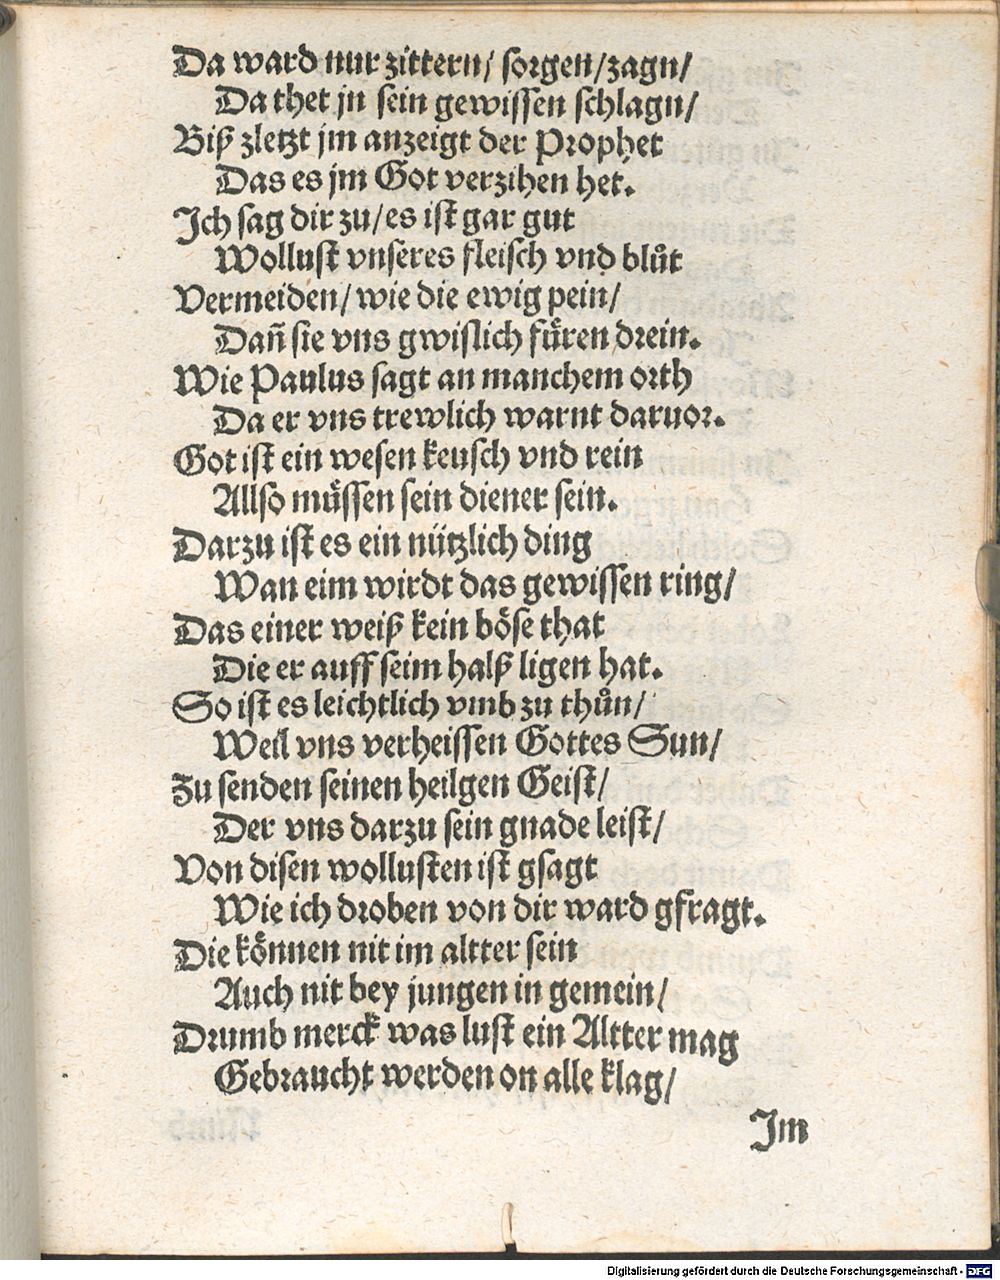 Da ward nur zittern/ sorgen/zagn/
Da thet jn sein gewissen schlagn/
Biß zletzt jm anzeigt der Prophet
Das es jm Got verzihen het.
Ich sag dir zu/es ist gar gut
Wollust vnseres fleisch vnd blůt
Vermeiden/ wie die ewig pein/
Dañ sie vns gwislich fuͤren drein.
Wie Paulus sagt an manchem orth
Da er vns trewlich warnt daruor.
Got ist ein wesen keusch vnd rein
Allso muͤssen sein diener sein.
Darzu ist es ein nützlich ding
Wan eim wirdt das gewissen ring/
Das einer weiß kein boͤse that
Die er auff seim halß ligen hat.
So ist es leichtlich vmb zu thůn/
Weil vns verheissen Gottes Sun/
Zu senden seinen heilgen Geist/
Der vns darzu sein gnade leist/
Von disen wollusten ist gsagt
Wie ich droben von dir ward gfragt.
Die koͤnnen nit im altter sein
Auch nit bey jungen in gemein/
Drumb merck was lust ein Altter mag
Gebraucht werden on alle klag/
Im
Digitalisierung gefördert durch die Deutsche Forschungsgemeinschaft - DFG